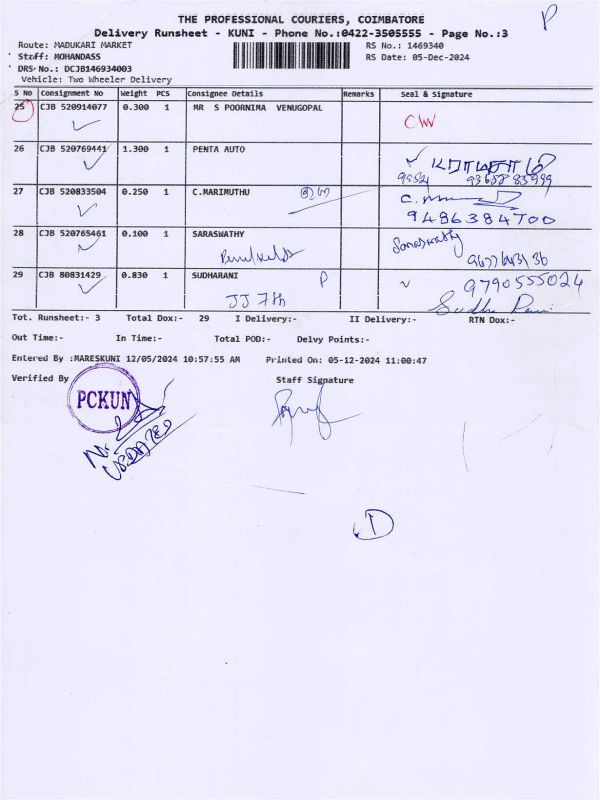 P
THE PROFESSIONAL COURIERS, COIMBATORE
Delivery Runsheet - KUNI - Phone No.:0422-3505555 - Page No.:3
Route: MADUKARI MARKET RS No.: 1469340
Staff: MOHANDASS RS Date: 05-Dec-2024
DRS No.: DCJB146934003
Vehicle: Two Wheeler Delivery
S No Consignment No Weight PCS Consignee Details Remarks Seal & Signature
25 CJB 520914077 0.300 1 MR S POORNIMA VENUGOPAL
26 CJB 520769441 1.300 1 PENTA AUTO
27 CJB 520833504 0.250 1 C.MARIMUTHU
9486384700
28 CJB 520765461 0.100 1 SARASWATHY Saraswathy
29 CJB 80831429 0.830 1 SUDHARANI P 9790555024
JJ 7th Sudha Rani
Tot. Runsheet:- 3 Total Dox:- 29 I Delivery:- II Delivery:- RTN Dox:-
Out Time:- In Time:- Total POD:- Delvy Points:-
Entered By :MARESKUNI 12/05/2024 10:57:55 AM Printed On: 05-12-2024 11:00:47
Verified By Staff Signature
PCKUN